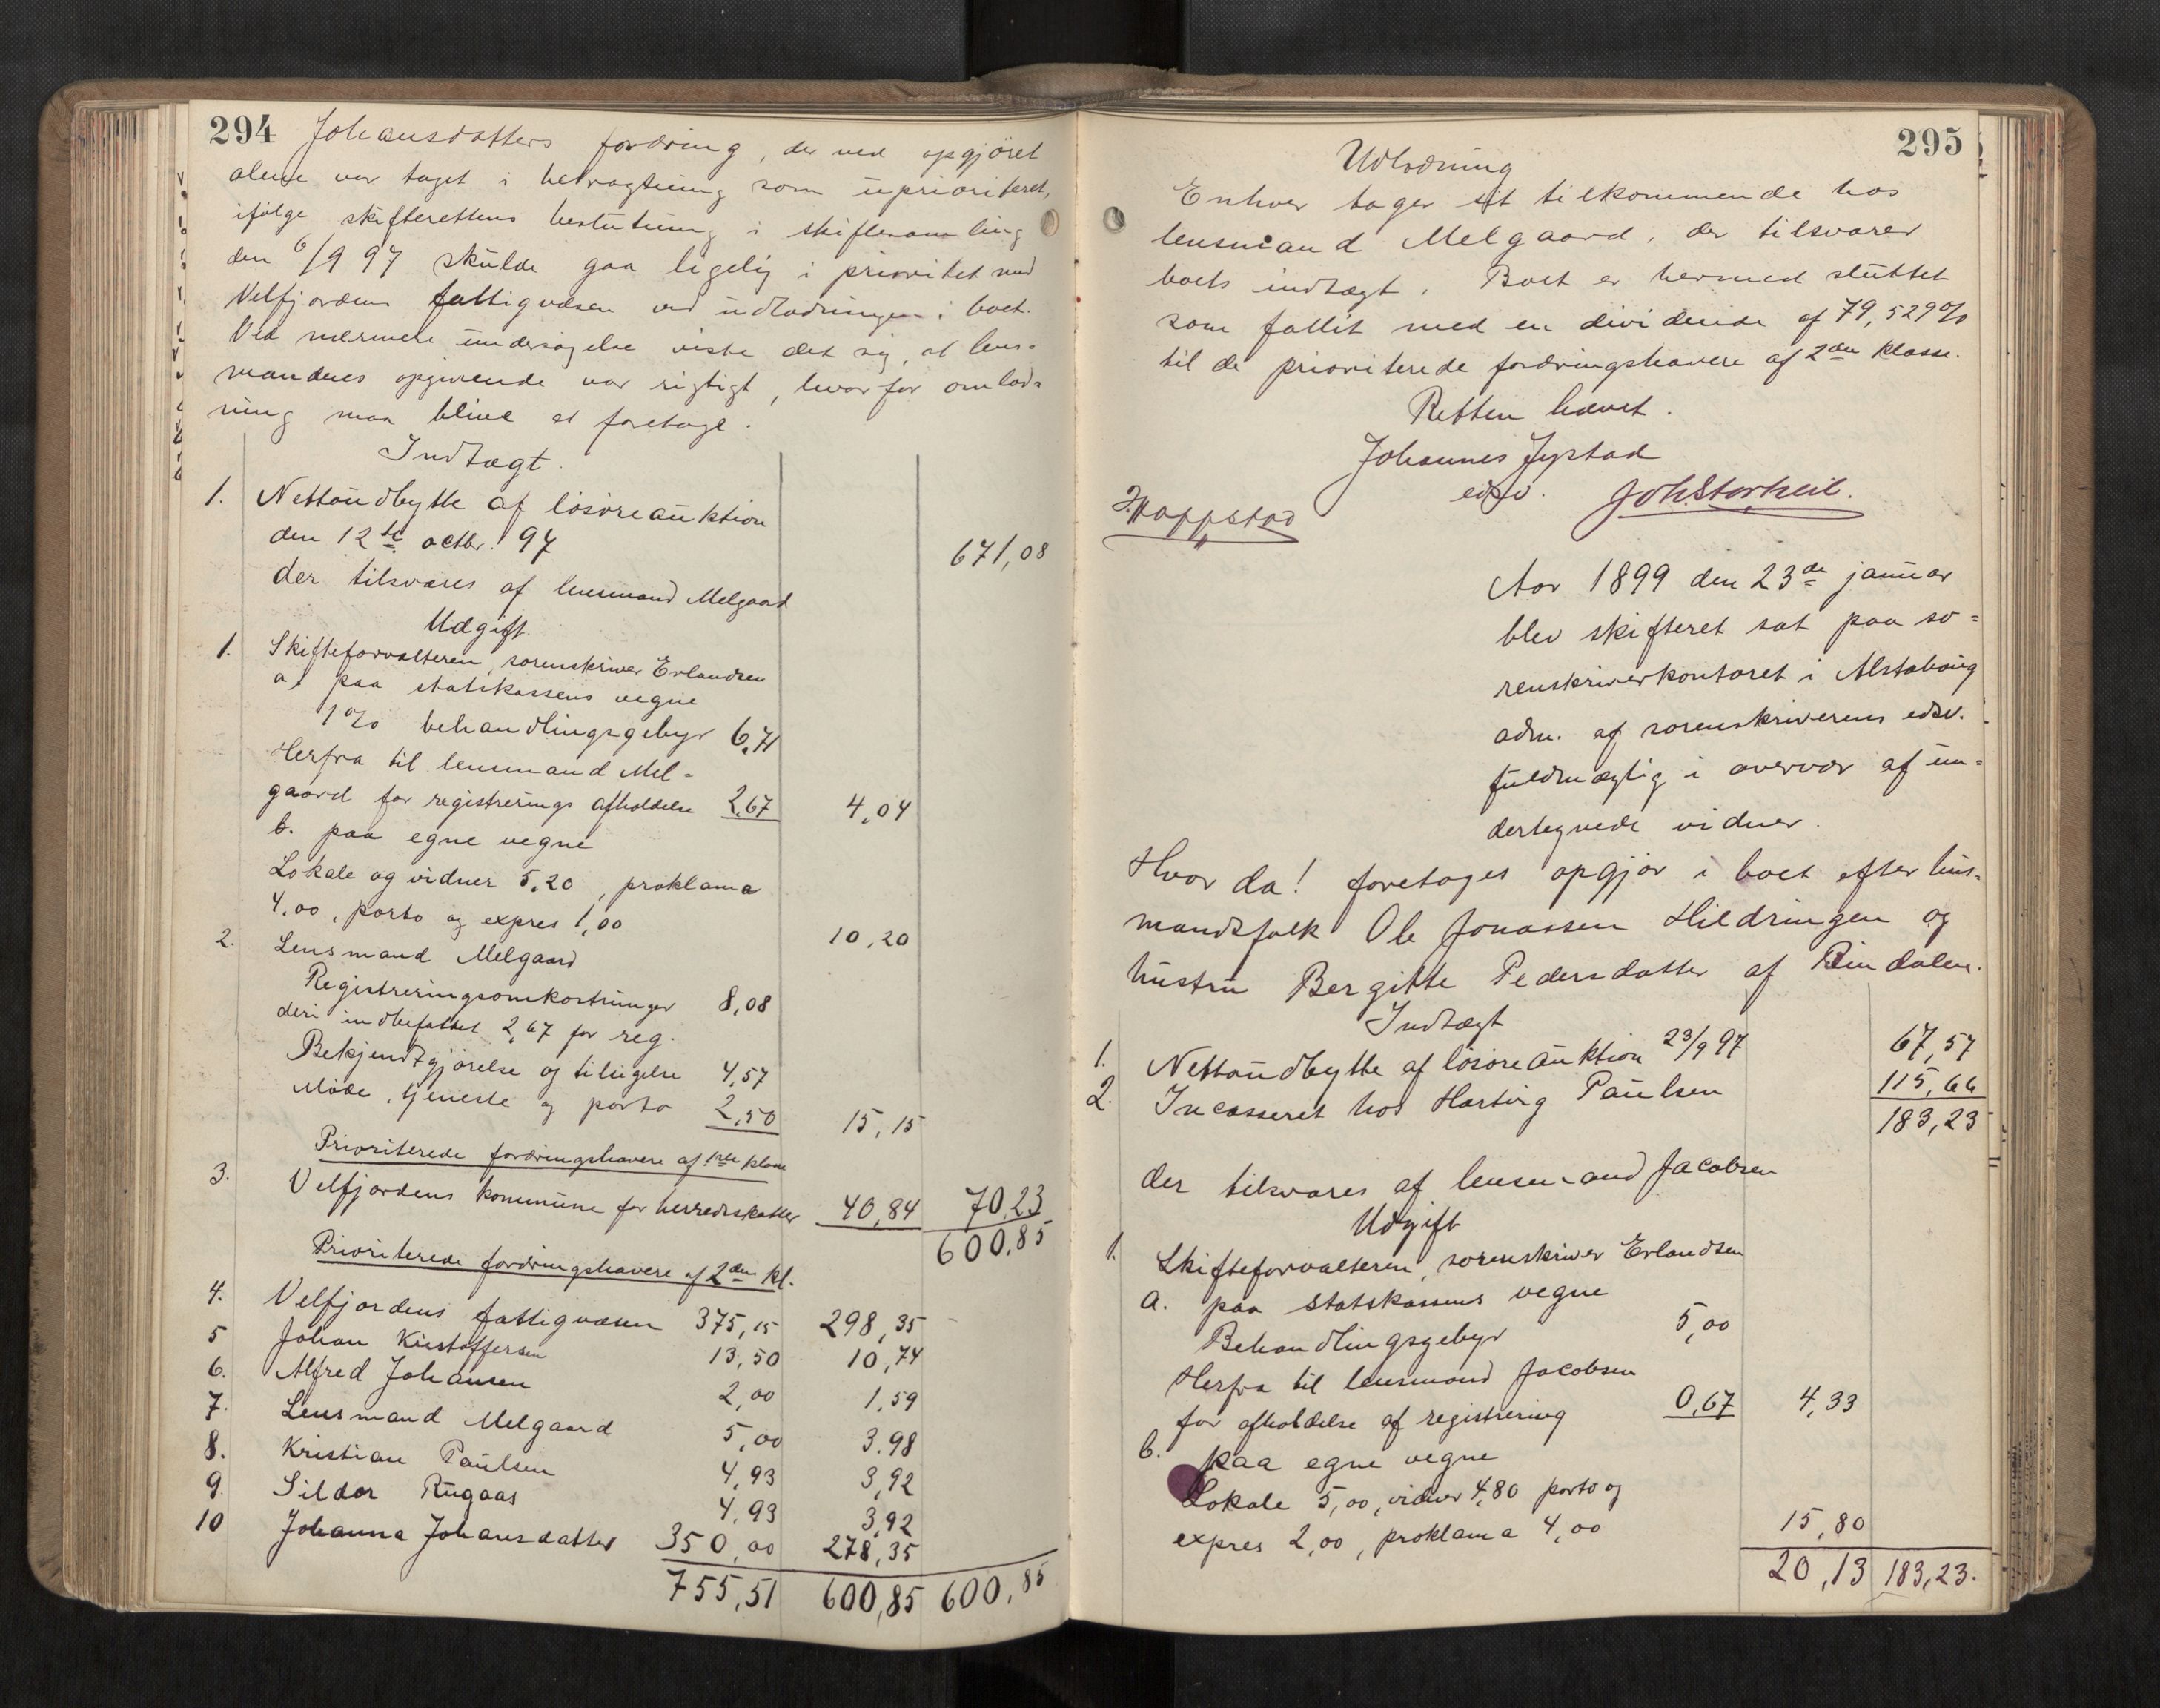 294
Johansdatters fordring, der ved opgjöret
alene var taget i betragtning som uprioriteret,
ifölge skifterettens beslutning i skiftesamling
den 6/9 97 skulde gaa ligelig i prioritet med
Velfjordens fattigvæsen ved udlodningen i boet.
Ved nærmere undersøgelse viste det sig, at lens-
mandens opgivende var rigtigt, hvorfor omlod-
ning maa blive at foretage.
Indtægt.
1. Nettoudbytte af lösöreauktion
den 12te octbr. 97 671,08
der tilsvares af lensmand Melgaard
Udgift
1. Skifteforvalteren, sorenskriver Erlandsen
a, paa statskassens vegne
1% behandlingsgebyr 6,71
Herfra til lensmand Mel-
gaard for registrerings afholdelse 2,67 4,04
b. paa egne vegne
Lokale og vidner 5,20, proklama
4,00, porto og expres 1,00 10,20
2. Lensmand Melgaard
Registreringsomkostninger 8,08
deri indbefattet 2,67 for reg.
Bekjendtgjörelse og tilsigelse 4,57
Möde, tjeneste og porto 2,50 15,15
Prioriterede fordringshavere af 1ste klasse
3. Velfjordens kommune for herredsskatter 40,84 70,23
600,85
Prioriterede fordringshavere af 2den kl.
4. Velfjordens fattigvæsen 375,15 298,35
5 Johan Kristoffersen 13,50 10,74
6. Alfred Johansen 2,00 1,59
7. Lensmand Melgaard 5,00 3.98
8. Kristian Paulsen 4,93 3,92
9 Sildor Rugaas 4,93 3,92
10 Johanna Johansdatter 350,00 278,35
755,51 600,85 600,85
295
Udlodning
Enhver tager sit tilkommende hos
lensmand Melgaard, der tilsvarer
boets indtægt. Boet er hermed sluttet
som fallit med en dividende af 79,529%
til de prioriterede fordringshavere af 2den klasse.
Retten hævet.
Johannes Jystad
edsv. Joh. Storheil.
J. Hoppstad
Aar 1899 den 23de januar
blev skifteret sat paa so-
renskriverkontoret i Alstahoug
adm. af sorenskriverens edsv.
fuldmægtig i overvær af un-
dertegnede vidner.
Hvor da! foretages opgjör i boet efter hus-
mandsfolk Ole Jonassen Hildringen og
hustru Bergitte Pedersdatter af Bindalen.
Indtægt
1. Nettoudbytte af lösöreauktion 23/9 97 67,57
2. Incasseret hos Hartvig Paulsen 115,66
183,23
der tilsvares af lensmand Jacobsen
Udgift
1. Skifteforvalteren, sorenskriver Erlandsen
a. paa statskassens vegne
Behandlingsgebyr 5,00
Herfra til lensmand Jacobsen
for afholdelse af registrering 0,67 4,33
b. paa egne vegne
Lokale 5,00, vidner 4,80 porto og
expres 2,00, proklama 4,00 15,80
20,13 183,23.